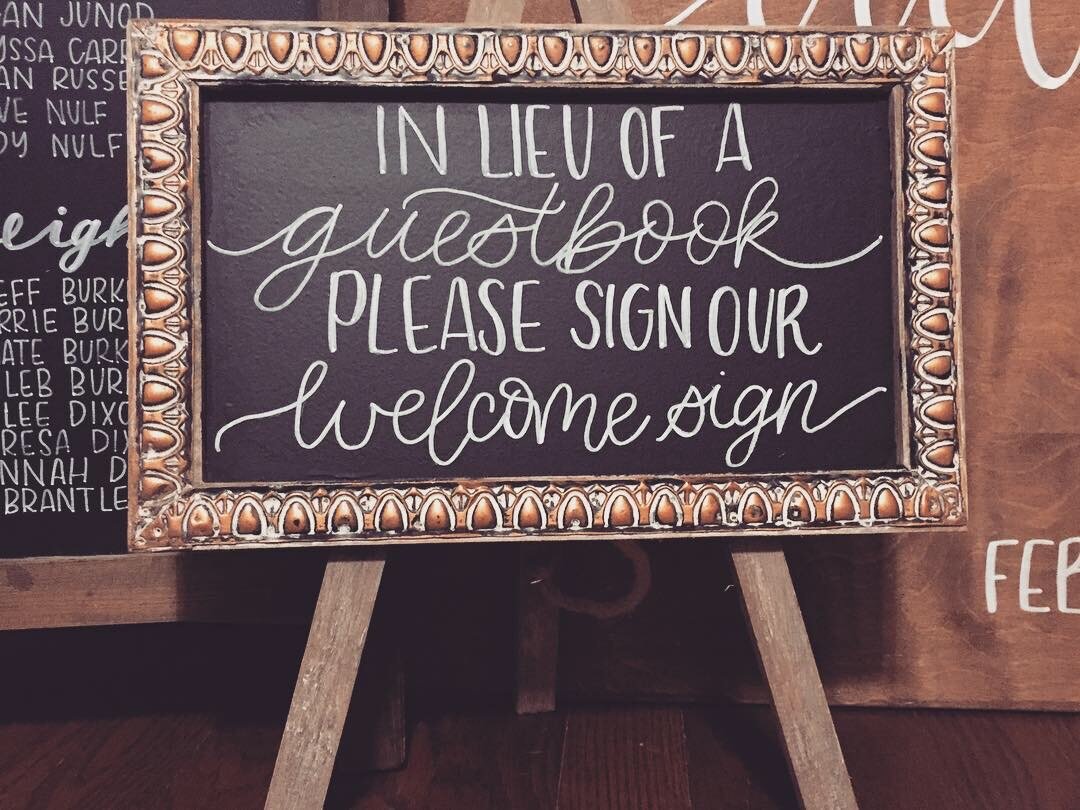 IN LIEU OF A
guestbook
PLEASE SIGN OUR
welcome sign
AN JUNOD
YSSA CARR
AN RUSSE
VE NULF
DY NULF
eigh
EFF BURK
RRIE BUR
ATE BURK
LEB BUR
LEE DIXO
RESA DIX
NNAH D
BRANTLE
FEB